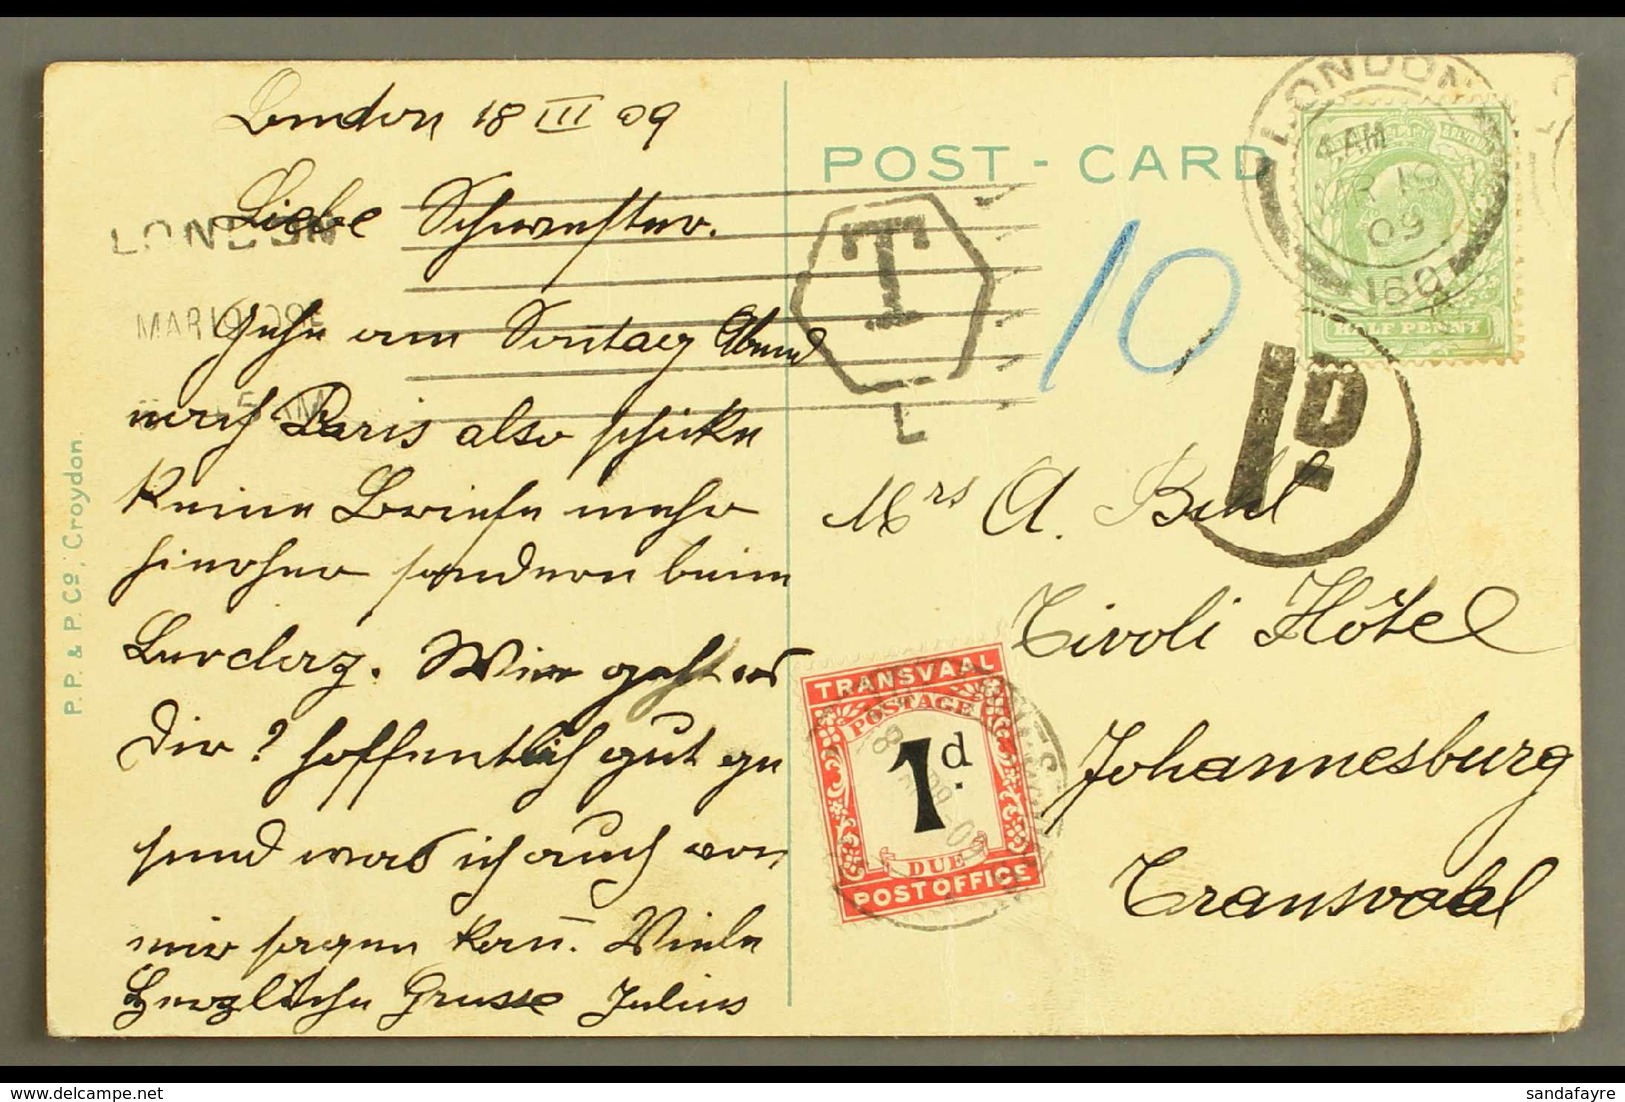 London 18 III 09
Liebe Schwester.
Gehe am Sontag Abend
nach Paris also schicke
keine Briefe mehr
hierher sondern beim
Wie geht es
Dir? hoffentlich gut ge
sund was ich auch von
mir sagen kañ. Viele
Herzlichе Grusse Julius
P.P. & P. Co, Croydon.
LONDON
MAR 19 09
POST-CARD
T
L
10
LONDON
4 AM
MR 19
09
160
HALF PENNY
1D
Mrs A.
Tivoli Hôtel
Johannesburg
Transvaal
TRANSVAAL
POSTAGE
1d.
DUE
POST OFFICE
sandafayre